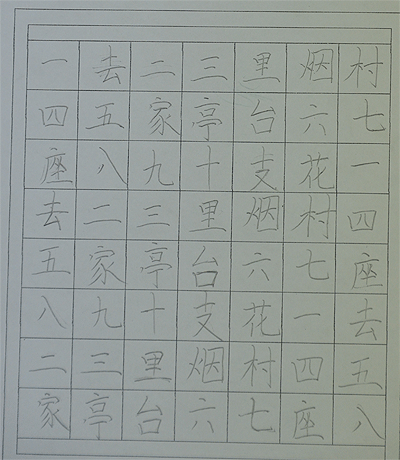 一去二三里烟村
四五家亭台六七
座八九十支花一
去二三里烟村四
五家亭台六七座
八九十支花一去
二三里烟村四五
家亭台六七座八